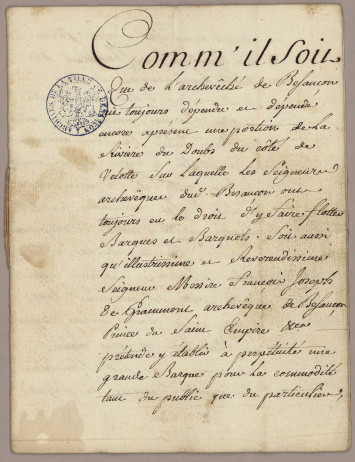 Comm' il Soit
Que de L'archevêché de Besançon
ait toujours dépendu et dépende
encore aprésent une portion de La
Riviere du Doubs du côté de
Velotte Sur Laquelle Les Seigneurs
archevêques dud. Besançon ont
toujours eu le droit d'y faire flotter
Barques et Barquots. Soit aussi
qu'illustrissime et Reverendissime
Seigneur Messire françois Joseph
de Grammont archevêque de Besançon,
Prince du Saint Empire &ca
prétende y établir à perpétuité une
grande Barque pour la commodité
tant du public que du particulier,